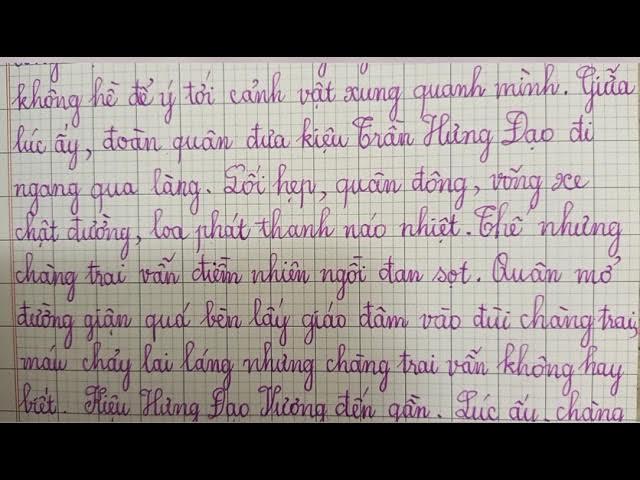 không hề để ý tới cảnh vật xung quanh mình. Giữa
lúc ấy, đoàn quân đưa kiệu Trần Hưng Đạo đi
ngang qua làng. Lối hẹp, quân đông, võng xe
chật đường, loa phát thanh náo nhiệt. Thế nhưng
chàng trai vẫn điềm nhiên ngồi đan sọt. Quân mở
đường giận quá bèn lấy giáo đâm vào đùi chàng trai,
máu chảy lai láng nhưng chàng trai vẫn không hay
biết. Kiệu Hưng Đạo Vương đến gần. Lúc ấy, chàng